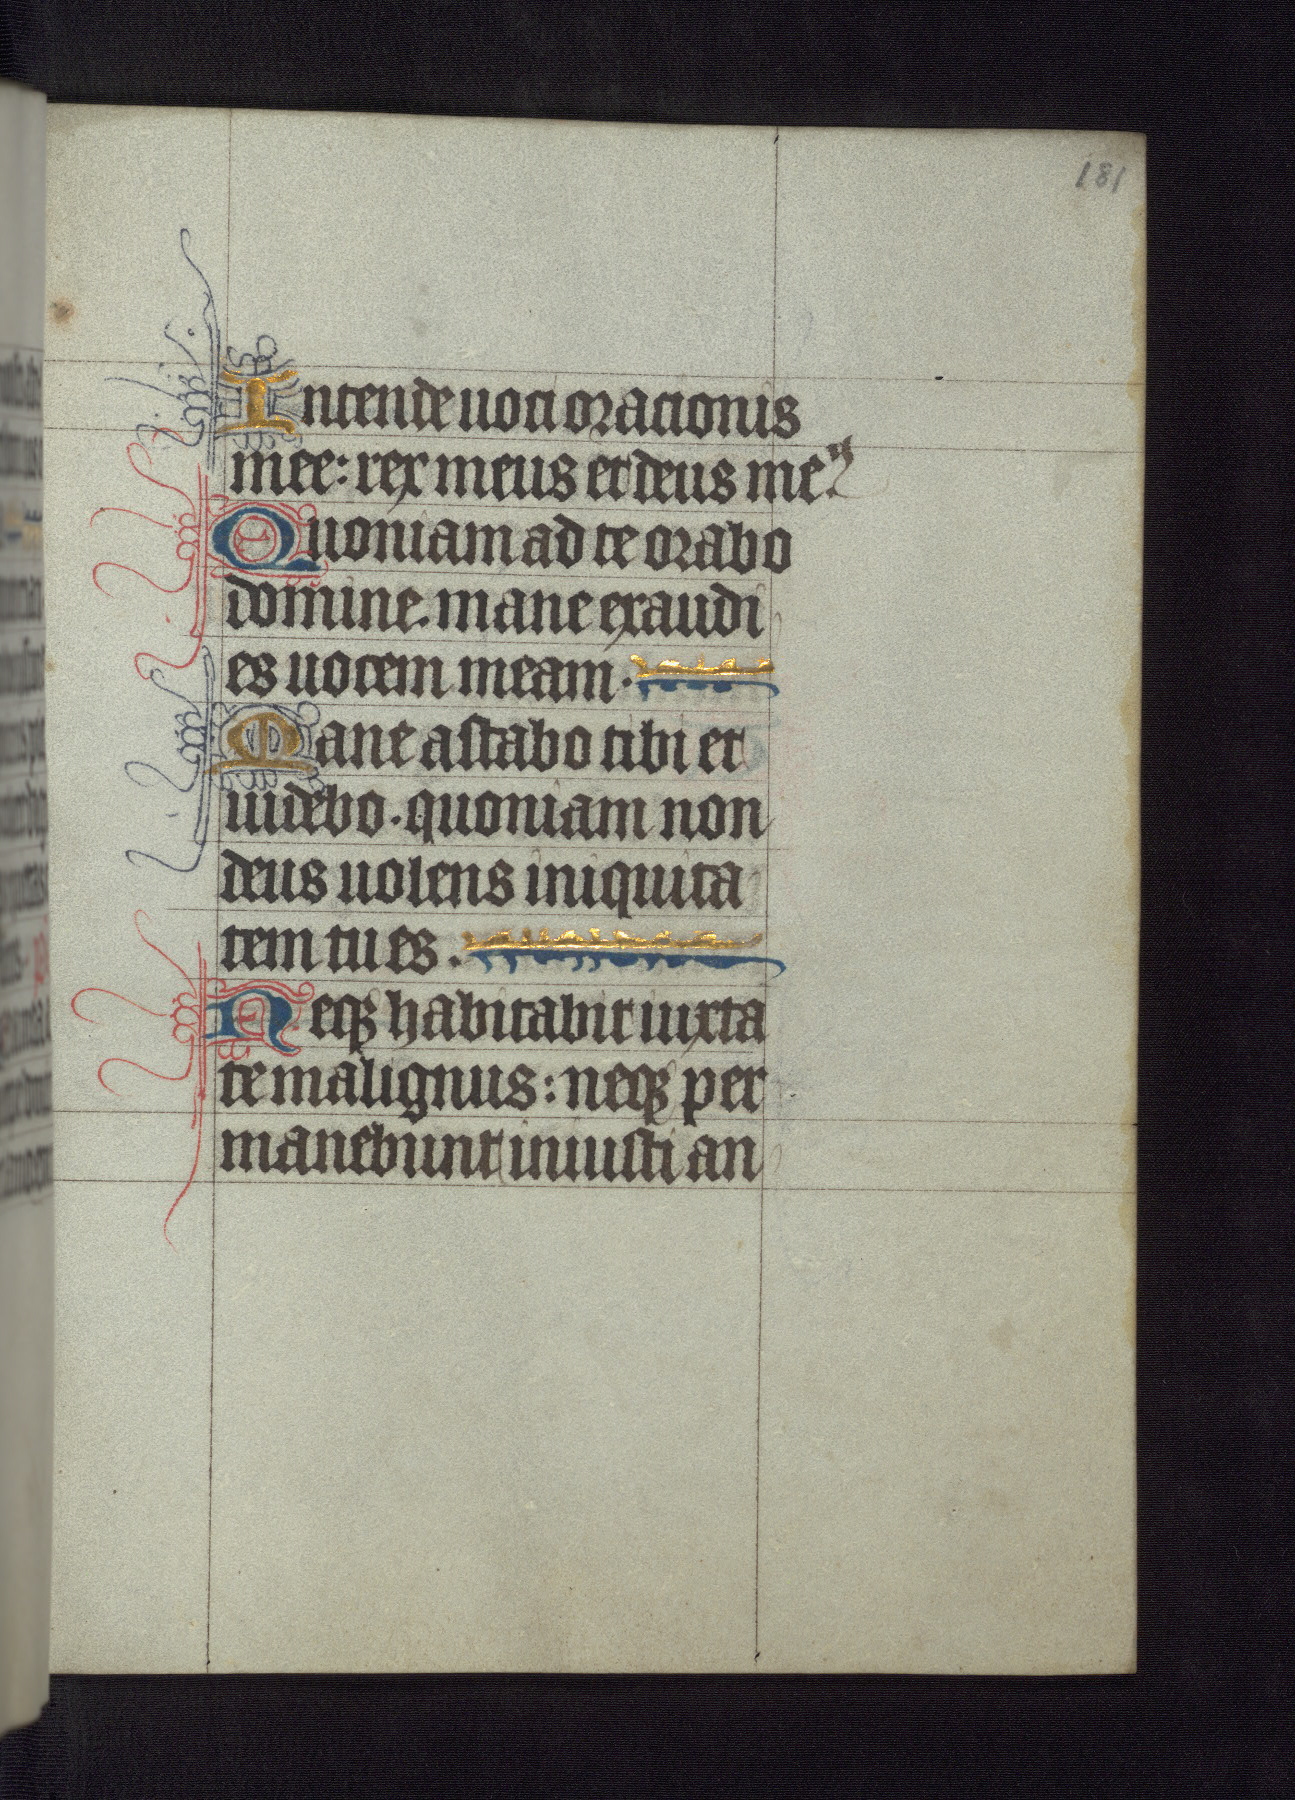 181
Intende uoci oracionis
mee: rex meus et deus me⁹.
Quoniam ad te orabo
domine. mane exaudi
es uocem meam.
Mane astabo tibi et
uidebo. quoniam non
deus uolens iniquita
tem tu es.
Neqꝫ habitabit iuxta
te malignus: neqꝫ per
manebunt iniusti an